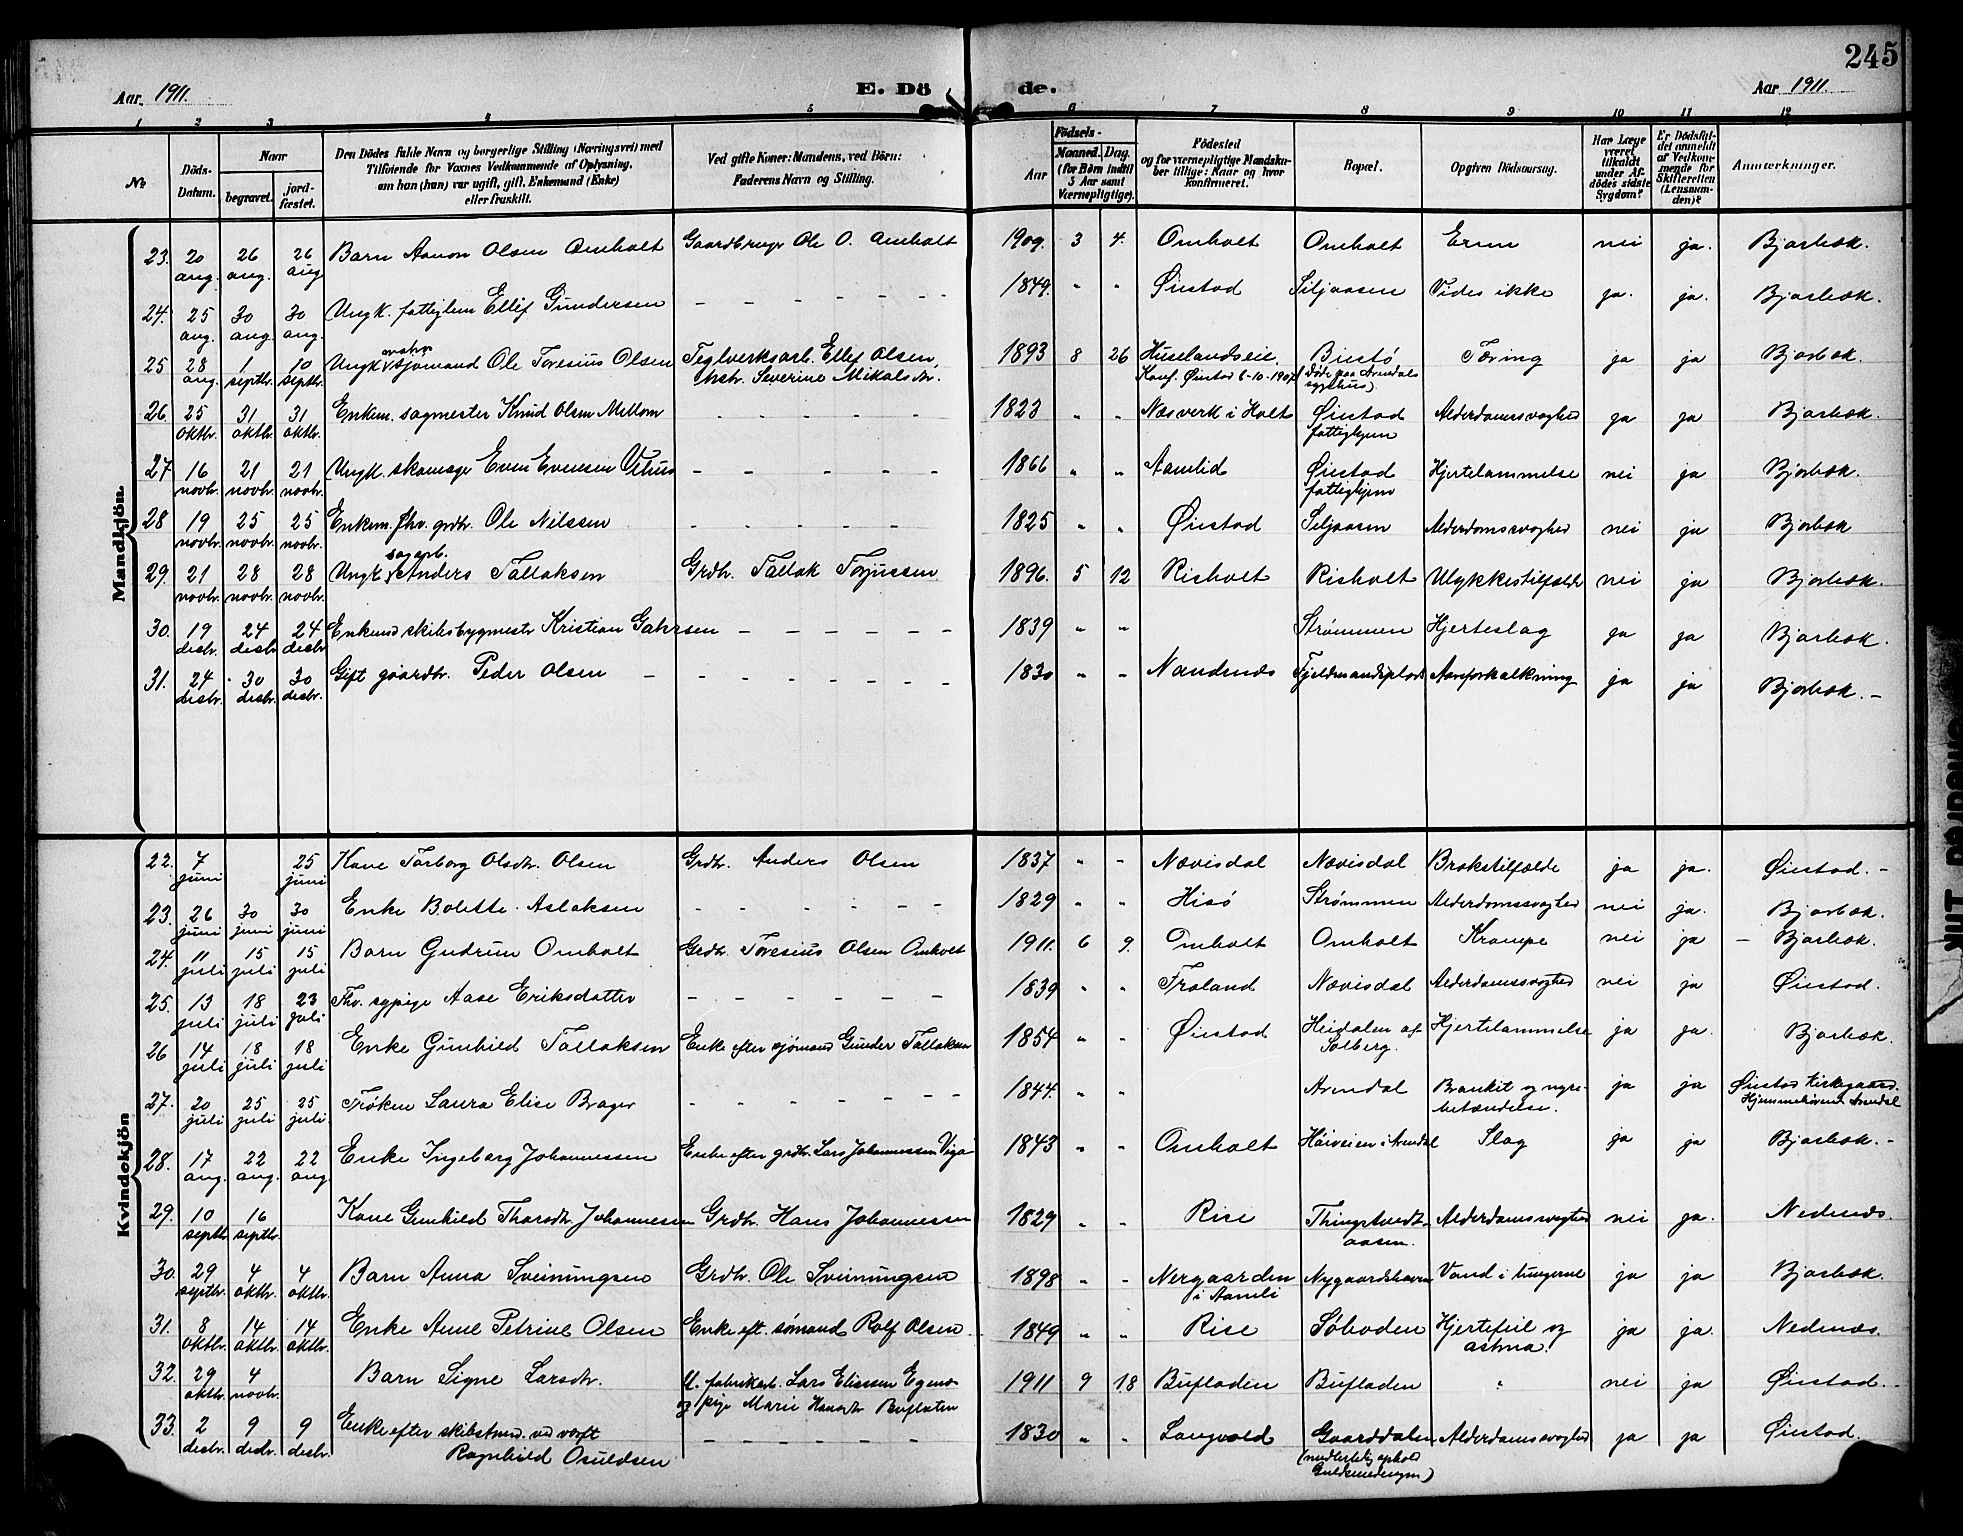 245
Aar 1911. E. Dö de. Aar 1911.
1 2 3 4 5 6 7 8 9 10 11 12
No
Döds-Datum.
Naar
begravet.
jord-fæstet.
Den Dödes fulde Navn og borgerlige Stilling (Næringsvei) med
Tilföiende for Voxnes Vedkommende af Oplysning,
om han (hun) var ugift, gift, Enkemand (Enke)
eller fraskilt.
Ved gifte Koner: Mandens, ved Börn:
Faderens Navn og Stilling.
Födsels-
Aar
Maaned. Dag.
(for Börn indtil
5 Aar samt
Værnepligtige).
Födested
og for værnepligtige Mandska-
ber tillige: Naar og hvor
konfirmeret.
Bopæl.
Opgiven Dödsaarsag.
Har Læge
været
tilkaldt
under Af-
dödes sidste
Sygdom?
Er Dödsfal-
det anmeldt
af Vedkom-
mende for
Skifteretten
(Lensman-
den)?
Anmærkninger.
Mandkjön.
23. 20 ang. 26 ang. 26 aug Barn Aanon Olsen Omholt Gaardbruger Ole O. Omholt 1909. 3 4. Omholt Omholt nei ja. Bjorbæk.
24. 25 ang. 30 ang. 30 ang. Ungk. fattiglem Ellef Gundersen – – – – – – 1849. " " Øiestad Siljaasen Vides ikke ja. ja. Bjorbæk.
25 28 ang. 1 septbr. 10 septbr. Ungk. sjømand Ole Toresius Olsen Teglverksarb. Ellef Olsen 1893 8 26 Huselandseie Biestø Tæring ja ja Bjorbæk.
hstr. Severine Mikalsdtr. Konf. Øiestad 6-10-1907 (Døde paa Arendals sygehus)
26. 25 oktbr. 31 oktbr. 31 oktbr. Enkem. sagmester Knud Olsen Mellom – – – – – 1823 " " Næsverk i Holt Øiestad fattighjem Alderdomssvaghed ja ja Bjorbæk.
27 16 novbr. 21 novbr. 21 novbr. Ungk. skomager Even Evensen – – – – – 1866 " " Aamlid Øiestad fattighjem Hjertelammelse nei ja Bjorbæk.
28 19 novbr. 25 novbr. 25 novbr. Enkem. fhv. grdbr. Ole Nilssen – – – – – 1825 " " Øiestad Siljaasen Alderdomssvaghed nei ja Bjorbæk
29. 21 novbr. 28 novbr. 28 novbr. Ungk. sagarb. Anders Tallaksen Grdbr. Tallak Torjussen 1896. 5 12 Risholt Risholt Ulykkestilfælde nei ja Bjorbæk.
30. 19 desbr. 24 desbr 24 desbr. Enkemd skibsbygmestr Kristian Gahrsen – – – – – 1839 " " Strømmen Hjerteslag ja ja Bjorbæk.
31. 24 desbr. 30 desbr. 30 desbr. Gift gaardbr. Peder Olsen – – – – – – 1830 " " Nandenæs Fjeldmandsplads Aareforkalkning ja ja Bjorbæk.–
Kvindekjön
22. 7 juni 25 juni Kone Torborg Olsdtr. Olsen Grdbr. Anders Olsen 1837 " " Nævisdal Nævisdal Brokstilfælde ja ja. Øiestad.–
23. 26 juni 30 juni 30 juni Enke Bolette Aslaksen – – – – – – 1829 " " Hisø Strømmen Alderdomssvaghed nei ja. Bjorbæk.
24. 11 juli 15 juli 15 juli Barn Gudrun Omholt Grdbr. Toresius Olsen Omholt 1911. 6 9. Omholt Omholt Krampe nei ja – Bjorbæk.
25. 13 juli 18 juli 23 juli Fhv. sypige Aase Eriksdatter – – – – – – 1839 " " Froland Nævisdal Alderdomssvaghed nei ja Øiestad.
26 14 juli 18 juli 18 juli Enke Gunhild Tallaksen Enke efter sjømand Gunder Tallaksen 1854 " " Øiestad Heidalen af Solberg. Hjertelammelse ja ja. Bjorbæk.
27. 20 juli 25 juli 25 juli Frøken Laura Elise Brager – – – – – – 1844. " " Arendal Bronkit og nyre-betændelse. ja ja Øiestad kirkegaard. Hjemmehørende Arendal
28. 17 aug. 22 aug. 22 aug. Enke Ingeborg Johannessen Enke efter grdbr. Lars Johannessen Viga 1843 " " Omholt Høiveien i Arendal Slag ja ja Bjorbæk.–
29. 10 septbr 16 septbr. Kone Gunhild Tharsdtr. Johannessen Grdbr. Hans Johannessen 1829 " " Rise Thingstvedt-aasen. Alderdomssvaghed nei ja. Nedenæs.
30. 29 septbr. 4 oktbr. 4 oktbr. Barn Anna Sveinungsen Grdbr. Ole Sveinungsen 1898 " " Nergaarden i Aamli Nygaardshaven Vand i lungerne ja ja Bjorbæk.
31. 8 oktbr. 14 oktbr. 14 oktbr. Enke Anne Petrine Olsen Enke eft. sømand Rolf Olsen 1849 " " Rise Søboden Hjertefeil og astma. ja ja. Nedenæs.
32. 29 oktbr. 4 novbr. Barn Signe Larsdtr. U. fabrikarb. Lars Eliessen 1911 9 18 Bufladen Bufladen " nei ja Øiestad.–
og pige Marie Hansdtr Bufladen
33. 2 desbr. 9 desbr. 9 desbr. Enke efter skibstmd. ved værft – – – – – – 1830 " " Langvold Gaarddalen Alderdomssvaghed ja ja Øiestad.
Ragnhild Osuldsen (midlertidig ophold